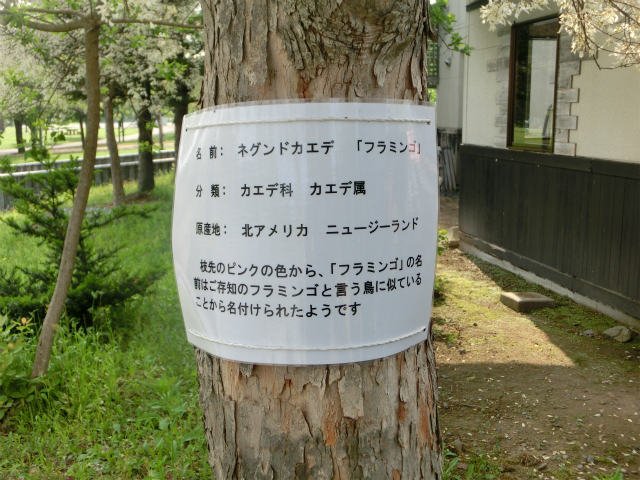 名 前： ネグンドカエデ 「フラミンゴ」
分 類： カエデ科 カエデ属
原産地： 北アメリカ ニュージーランド
枝先のピンクの色から、「フラミンゴ」の名
前はご存知のフラミンゴと言う鳥に似ている
ことから名付けられたようです